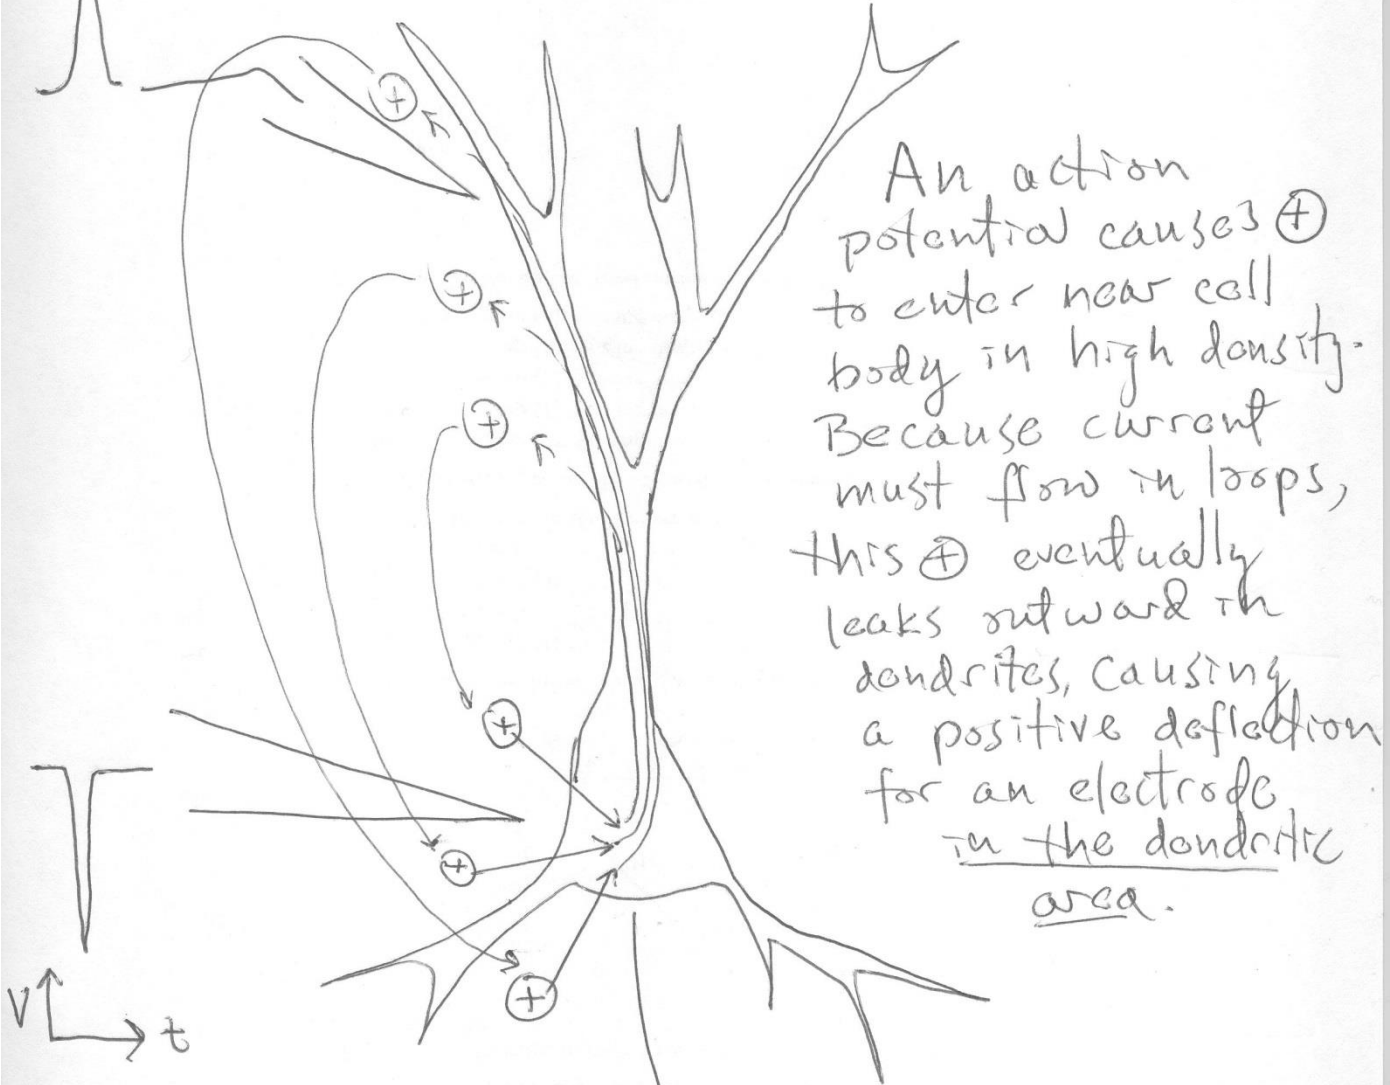 An action
potential causes ⊕
to enter near cell
body in high density.
Because current
must flow in loops,
this ⊕ eventually
leaks outward in
dendrites, causing
a positive deflection
for an electrode
in the dendritic
area.
+
+
+
+
+
+
V
t